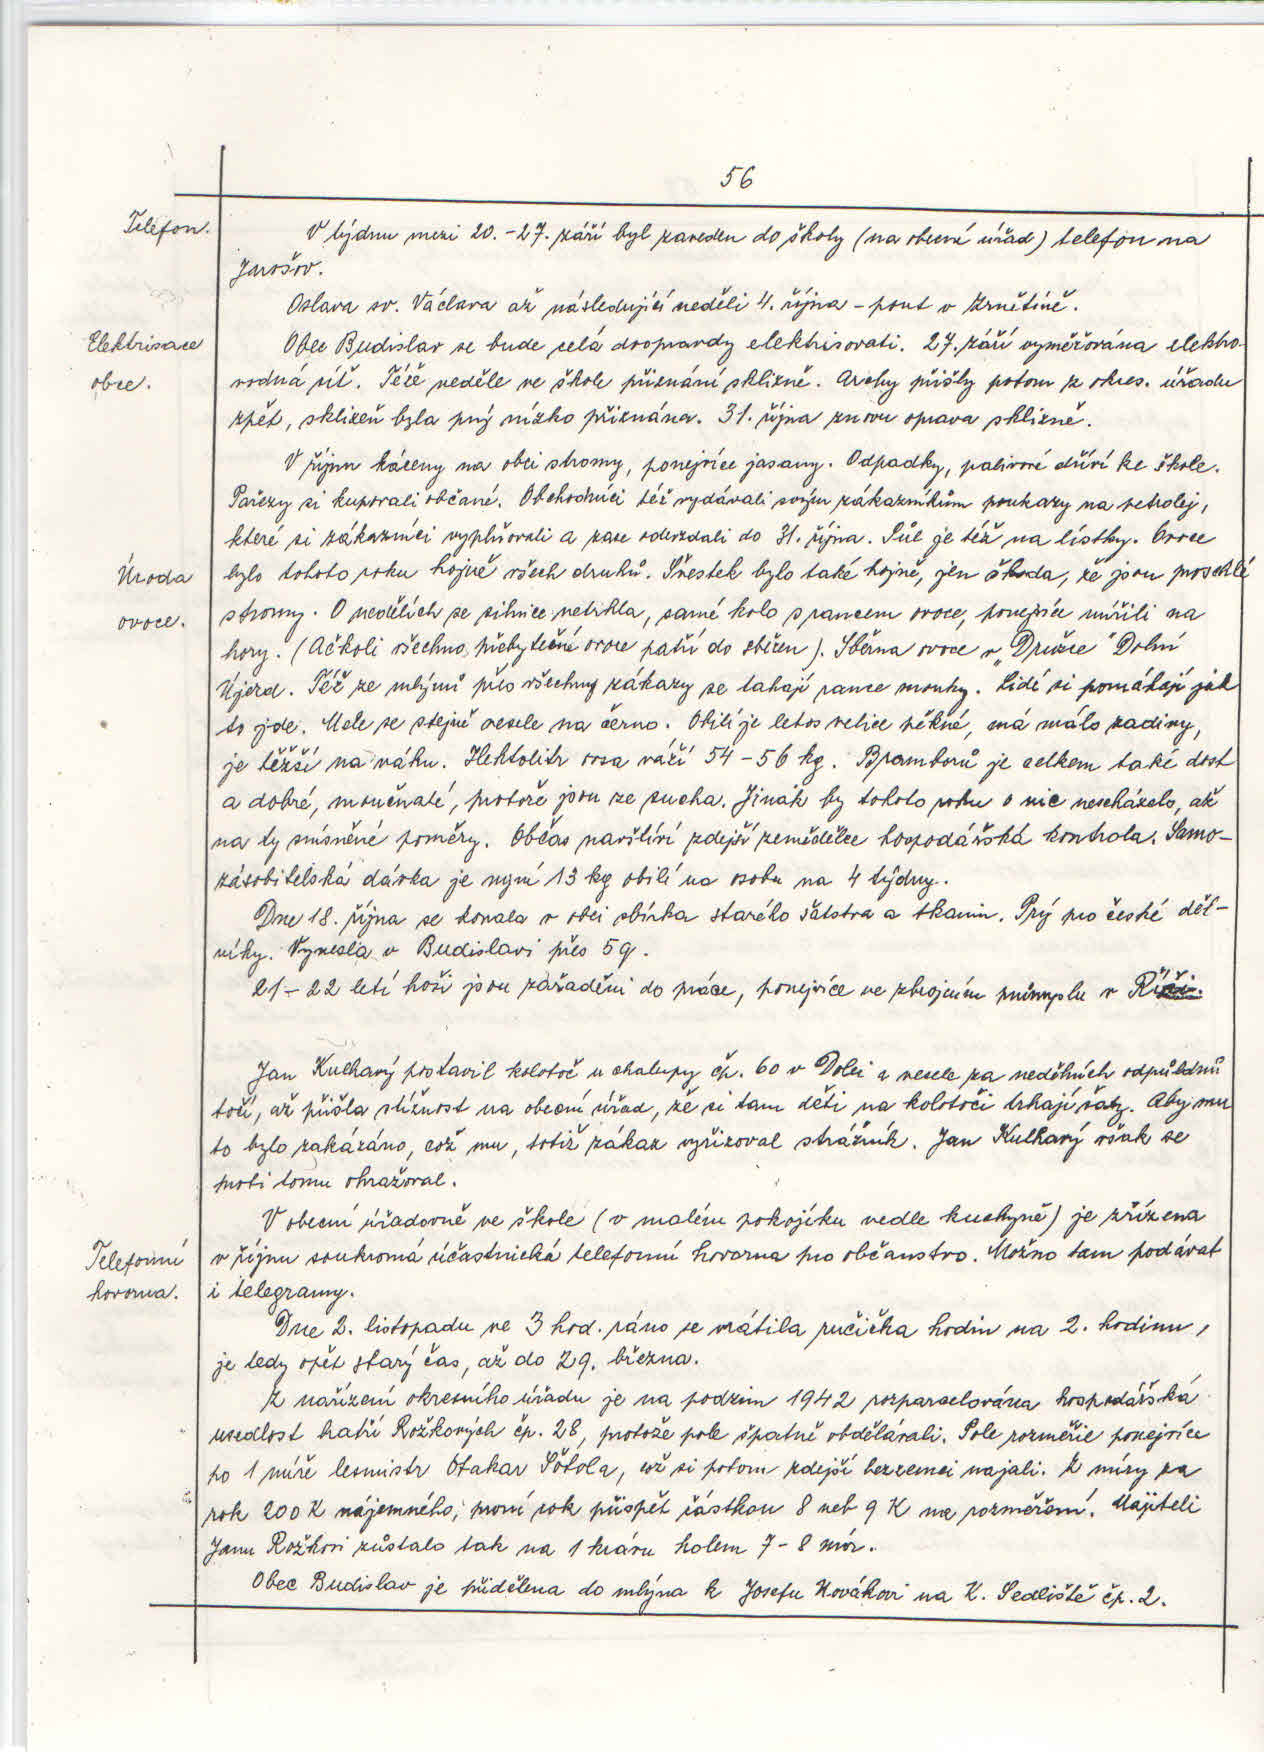 56
Telefon.
V týdnu mezi 20.-27. září byl zaveden do školy (na obecní úřad) telefon na
Jarošov.
Oslava sv. Václava až následující neděli 4. října - pout v Zrnětíně.
Elektrisace
obce.
Obec Budislav se bude celá doopravdy elektrisovati. 27. září vyměřována elektro-
vodná síť. Téže neděle ve škole přiznání sklizně. Archy přišly potom z okres. úřadu
zpět, sklizeň byla prý nízko přiznána. 31. října znovu oprava sklizně.
V říjnu káceny na obci stromy, ponejvíce jasany. Odpadky, palivové dříví ke škole.
Pařezy si kupovali občané. Obchodníci též vydávali svým zákazníkům poukazy na petrolej,
které si zákazníci vyplňovali a zase odevzdali do 31. října. Sůl je též na lístky. Ovoce
Úroda
ovoce.
bylo tohoto roku hojně všech druhů. Švestek bylo také hojně, jen škoda, že jsou proschlé
stromy. O nedělích se silnice netrhla, samé kolo s rancem ovoce, ponejvíce mířili na
hory. (Ačkoli všechno přebytečné ovoce patří do sběren). Sběrna ovoce v „Družce" Dolní
Újezd. Též ze mlýnů přes všechny zákazy se tahají rance mouky. Lidé si pomáhají jak
to jde. Mele se stejně vesele na černo. Obilí je letos velice pěkné, má málo zadiny,
je těžší na váhu. Hektolitr ovsa váží 54-56 kg. Bramborů je celkem také dost
a dobré, moučnaté, protože jsou ze sucha. Jinak by tohoto roku o nic nescházelo, až
na ty smíšněné poměry. Občas navštíví zdejší zemědělce hospodářská kontrola. Samo-
zásobitelská dávka je nyní 13 kg obilí na osobu na 4 týdny.
Dne 18. října se konala v obci sbírka starého šatstva a tkanin. Prý pro české děl-
níky. Vynesla v Budislavi přes 5q.
21-22 letí hoši jsou zařaděni do práce, ponejvíce ve zbrojním průmyslu v Říši.
Jan Kulhavý postavil kolotoč u chalupy čp. 60 v Dolci a vesele za nedělních odpůldnů
točí, až přišla stížnost na obecní úřad, že si tam děti na kolotoči trhají šaty. Aby mu
to bylo zakázáno, což mu, totiž zákaz vyřizoval strážník. Jan Kulhavý však se
proti tomu ohražoval.
V obecní úřadovně ve škole (v malém pokojíku vedle kuchyně) je zřízena
Telefonní
hovorna.
v říjnu soukromá účastnická telefonní hovorna pro občanstvo. Možno tam podávat
i telegramy.
Dne 2. listopadu ve 3 hod. ráno se vrátila ručička hodin na 2. hodinu,
je tedy opět starý čas, až do 29. března.
Z nařízení okresního úřadu je na podzim 1942 rozparcelována hospodářská
usedlost bratří Rožkových čp. 28, protože pole špatně obdělávali. Pole rozměřil ponejvíce
po 1 míře lesmistr Otakar Šötola, což si potom zdejší bezzemci najali. Z míry za
rok 200 K nájemného, první rok příspět částkou 8 neb 9 K na rozměření. Majiteli
Janu Rožkovi zůstalo tak na 1 krávu kolem 7-8 měr.
Obec Budislav je přidělena do mlýna k Josefu Novákovi na K. Sedliště čp. 2.